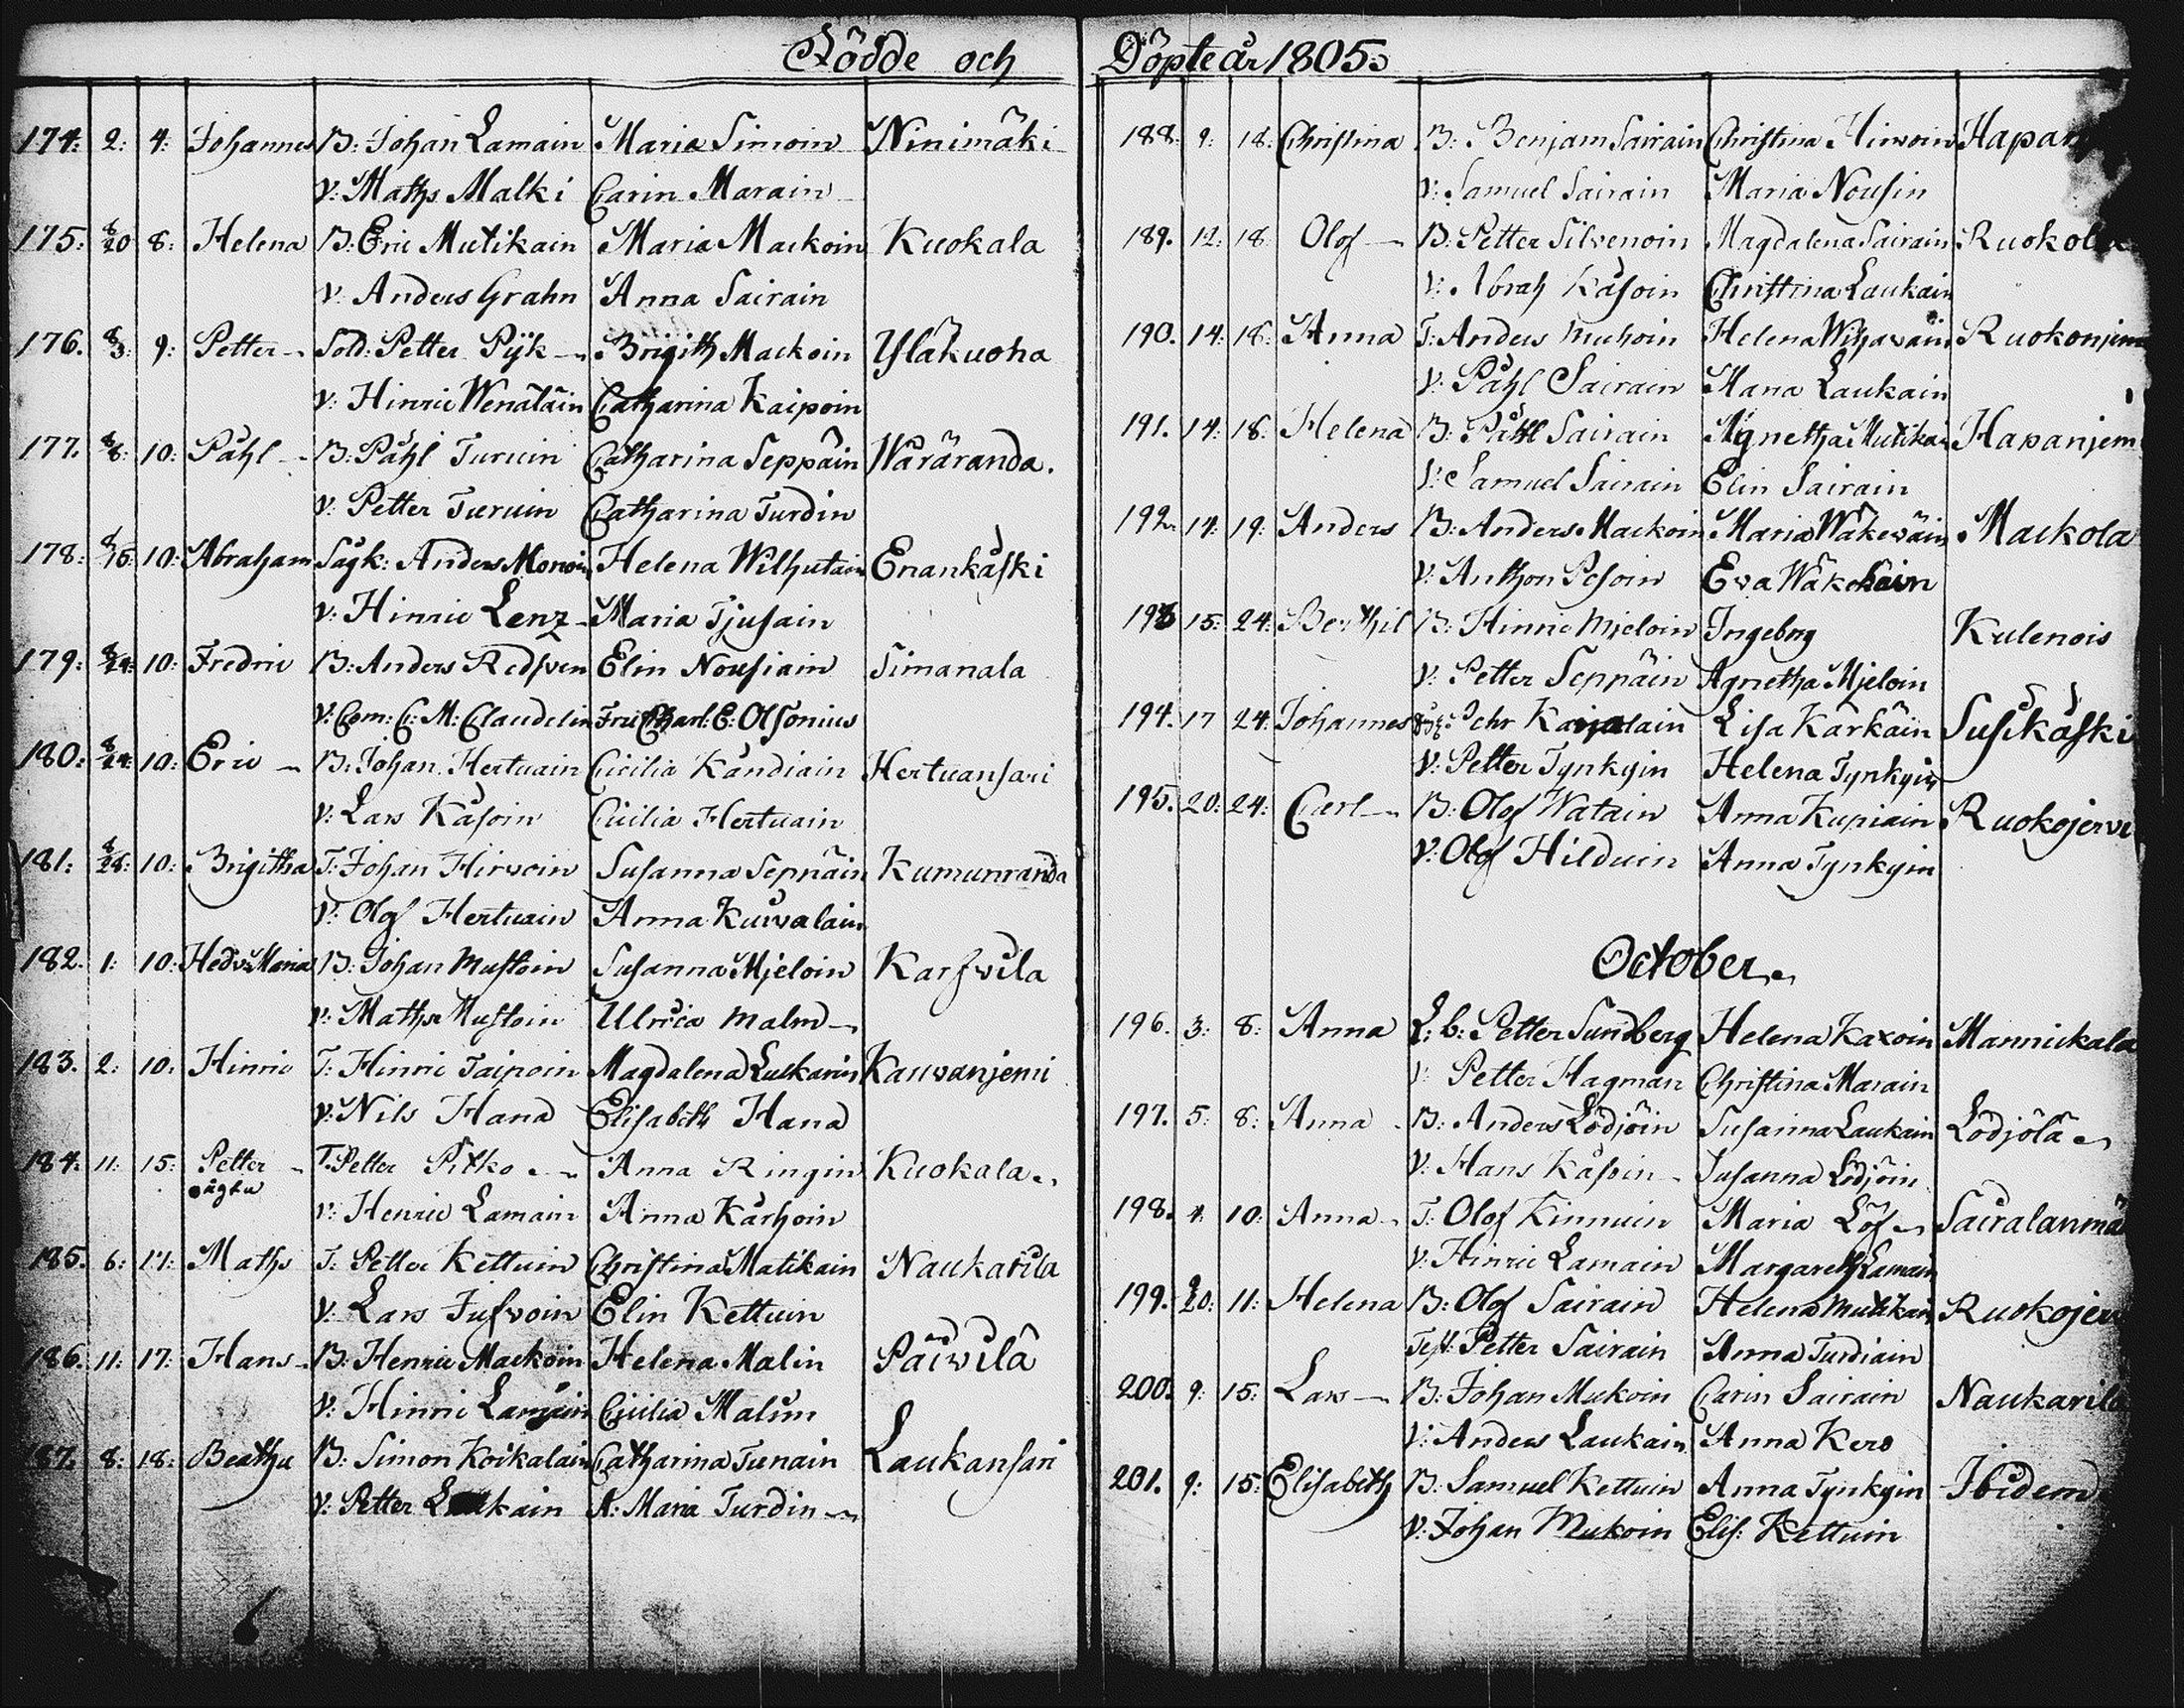 Födde och
174: 2: 4: Johannes B: Johan Lamain Maria Simoin Ninimäki
V: Maths Malki Carin Marain
175: 8/20 8: Helena B: Eric Mutikain Maria Mackoin Kuokala
V: Anders Grahn Anna Sairain
176. 8/3: 9: Petter Sold: Petter Pijk Brigith Mackoin Ylakuoha
V: Hinric Wenäläin Catharina Kaipoin
177. 8/8: 10: Påhl B: Påhl Turuin Catharina Seppäin Wäräranda.
V: Petter Turuin Catharina Turdin
178: 10: Abraham Sågk: Anders Monoin Helena Wilhutain Enankåski
V: Hinric Lenz Maria Tjusain
179: 8/24: 10: Fredric B: Anders Redsven Elin Nousiain Simanala
V: Com: C: M: Claudelin Fru Charl: E: Olsonius
180: 8/24: 10: Eric B: Johan Hertuain Cicilia Kändiain Hertuansari
V: Lars Kåsoin Cicilia Hertuain
181: 8/28: 10: Brigitha T: Johan Hirvoin Susanna Sepnäin Kumunranda
V: Olof Hertuain Anna Kurvalain
182. 1: 10: Hedv: Maria B: Johan Mustoin Susanna Mjeloin Karsvila
V: Maths Mustoin Ulrica Malm
183. 2: 10: Hinric T: Hinric Taipoin Magdalena Luskarin Kauvanjemi
V: Nils Hana Elisabeth Hana
184. 11: 15: Petter T: Petter Pitko Anna Ringin Kuokala
oägta
V: Henric Lamain Anna Kärhoin
185. 6: 17: Maths T: Petter Kettuin Christina Matikain Naukarila
V: Lars Jusvoin Elin Kettuin
186. 11: 17: Hans B: Henric Mackoin Helena Malin Päivilä
V: Hinric Lamain Cicilia Malin
187. 8: 18: Beatha B: Simon Koikalain Catharina Tunain Laukansari
V: Petter Laukain A: Maria Turdin
Döpte år 1805.
188: 9: 18: Christina B: Benjam Sairain Christina Hirvoin
V: Samuel Sairain Maria Nousin
189. 12: 18 Olof B: Petter Silvenoin Magdalena Sairain Ruokola
V: Abrah Kåsoin Christina Laukain
190. 14: 18: Anna T: Anders Muhoin Helena Wihavain Ruokonjem
V: Påhl Sairain Maria Laukain
191. 14: 18: Helena B: Påhl Sairain Agnetha Mutikain Hapanjem
V: Samuel Sairain Elin Sairain
192. 14: 19: Anders B: Anders Mackoin Maria Wäkeväin Mackola
V: Anthon Pesoin Eva
193 15: 24: Berthil B: Hinric Mjeloin Ingeborg Kulenois
V: Petter Seppäin Agnetha Mjeloin
194. 17 24: Johannes Pehr Karjalain Lisa Kärkäin Susikåski
V: Petter Tynkyin Helena Tynkyin
195. 20: 24: Carl B: Olof Watain Anna Kupiain Ruokojervi
V: Olof Hilduin Anna Tynkyin
October
196. 3: 8: Anna L: b: Petter Sundberg Helena Kaxoin Mannickala
V: Petter Hagman Christina Marain
197. 5: 8: Anna B: Anders Lödjöin Susanna Laukain Lödjölä
V: Hans Kåsoin Susanna Lödjöin
198. 4: 10: Anna T: Olof Kinnuin Maria Löf Sairalanmä
V: Hinric Lamain Margareth Lamain
199. 9/20: 11: Helena B: Olof Sairain Helena Mutikain Ruokojerv
Test: Petter Sairain Anna Turdiain
200. 9: 15: Lars B: Johan Mukoin Carin Sairain Naukarila
V: Anders Laukain Anna Kero
201. 9: 15: Elisabeth B: Samuel Kettuin Anna Tynkyin Ibidem
V: Johan Mukoin Elis: Kettuin